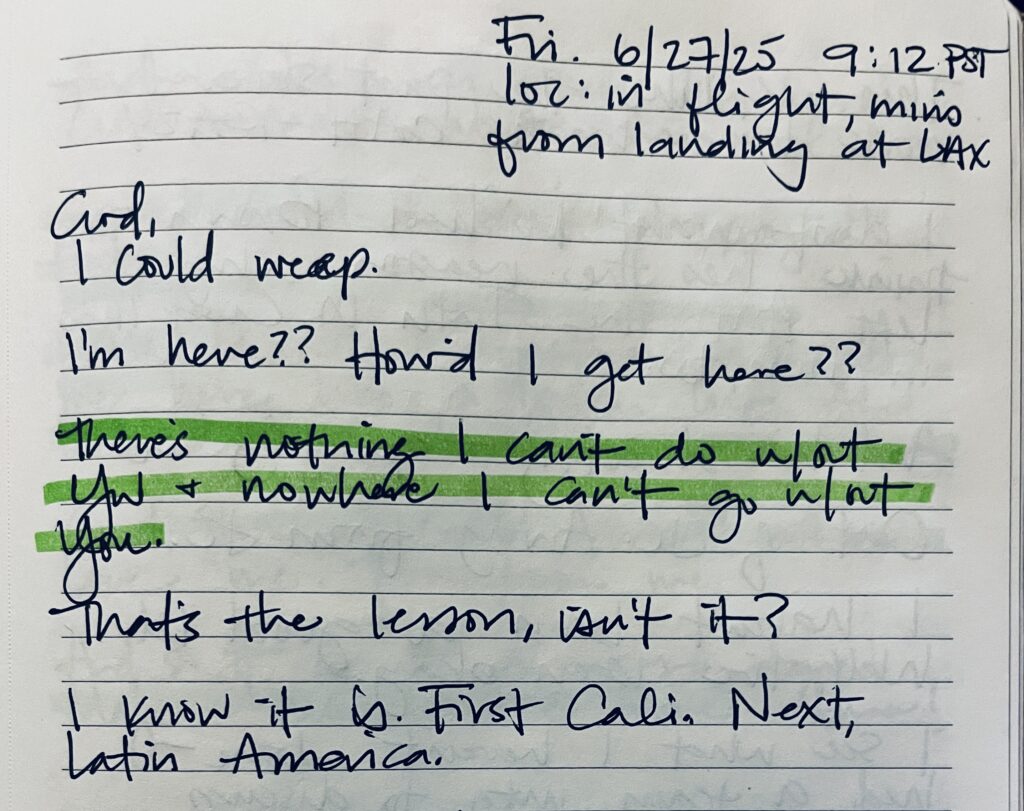 Fri. 6/27/25 9:12 PST
loc: in flight, mins
from landing at LAX
I could weep.
I'm here?? How'd I get here??
There's nothing I can't do w/out
you + nowhere I can't go w/out
you.
That's the lesson, isn't it?
I know it is. First Cali. Next,
Latin America.